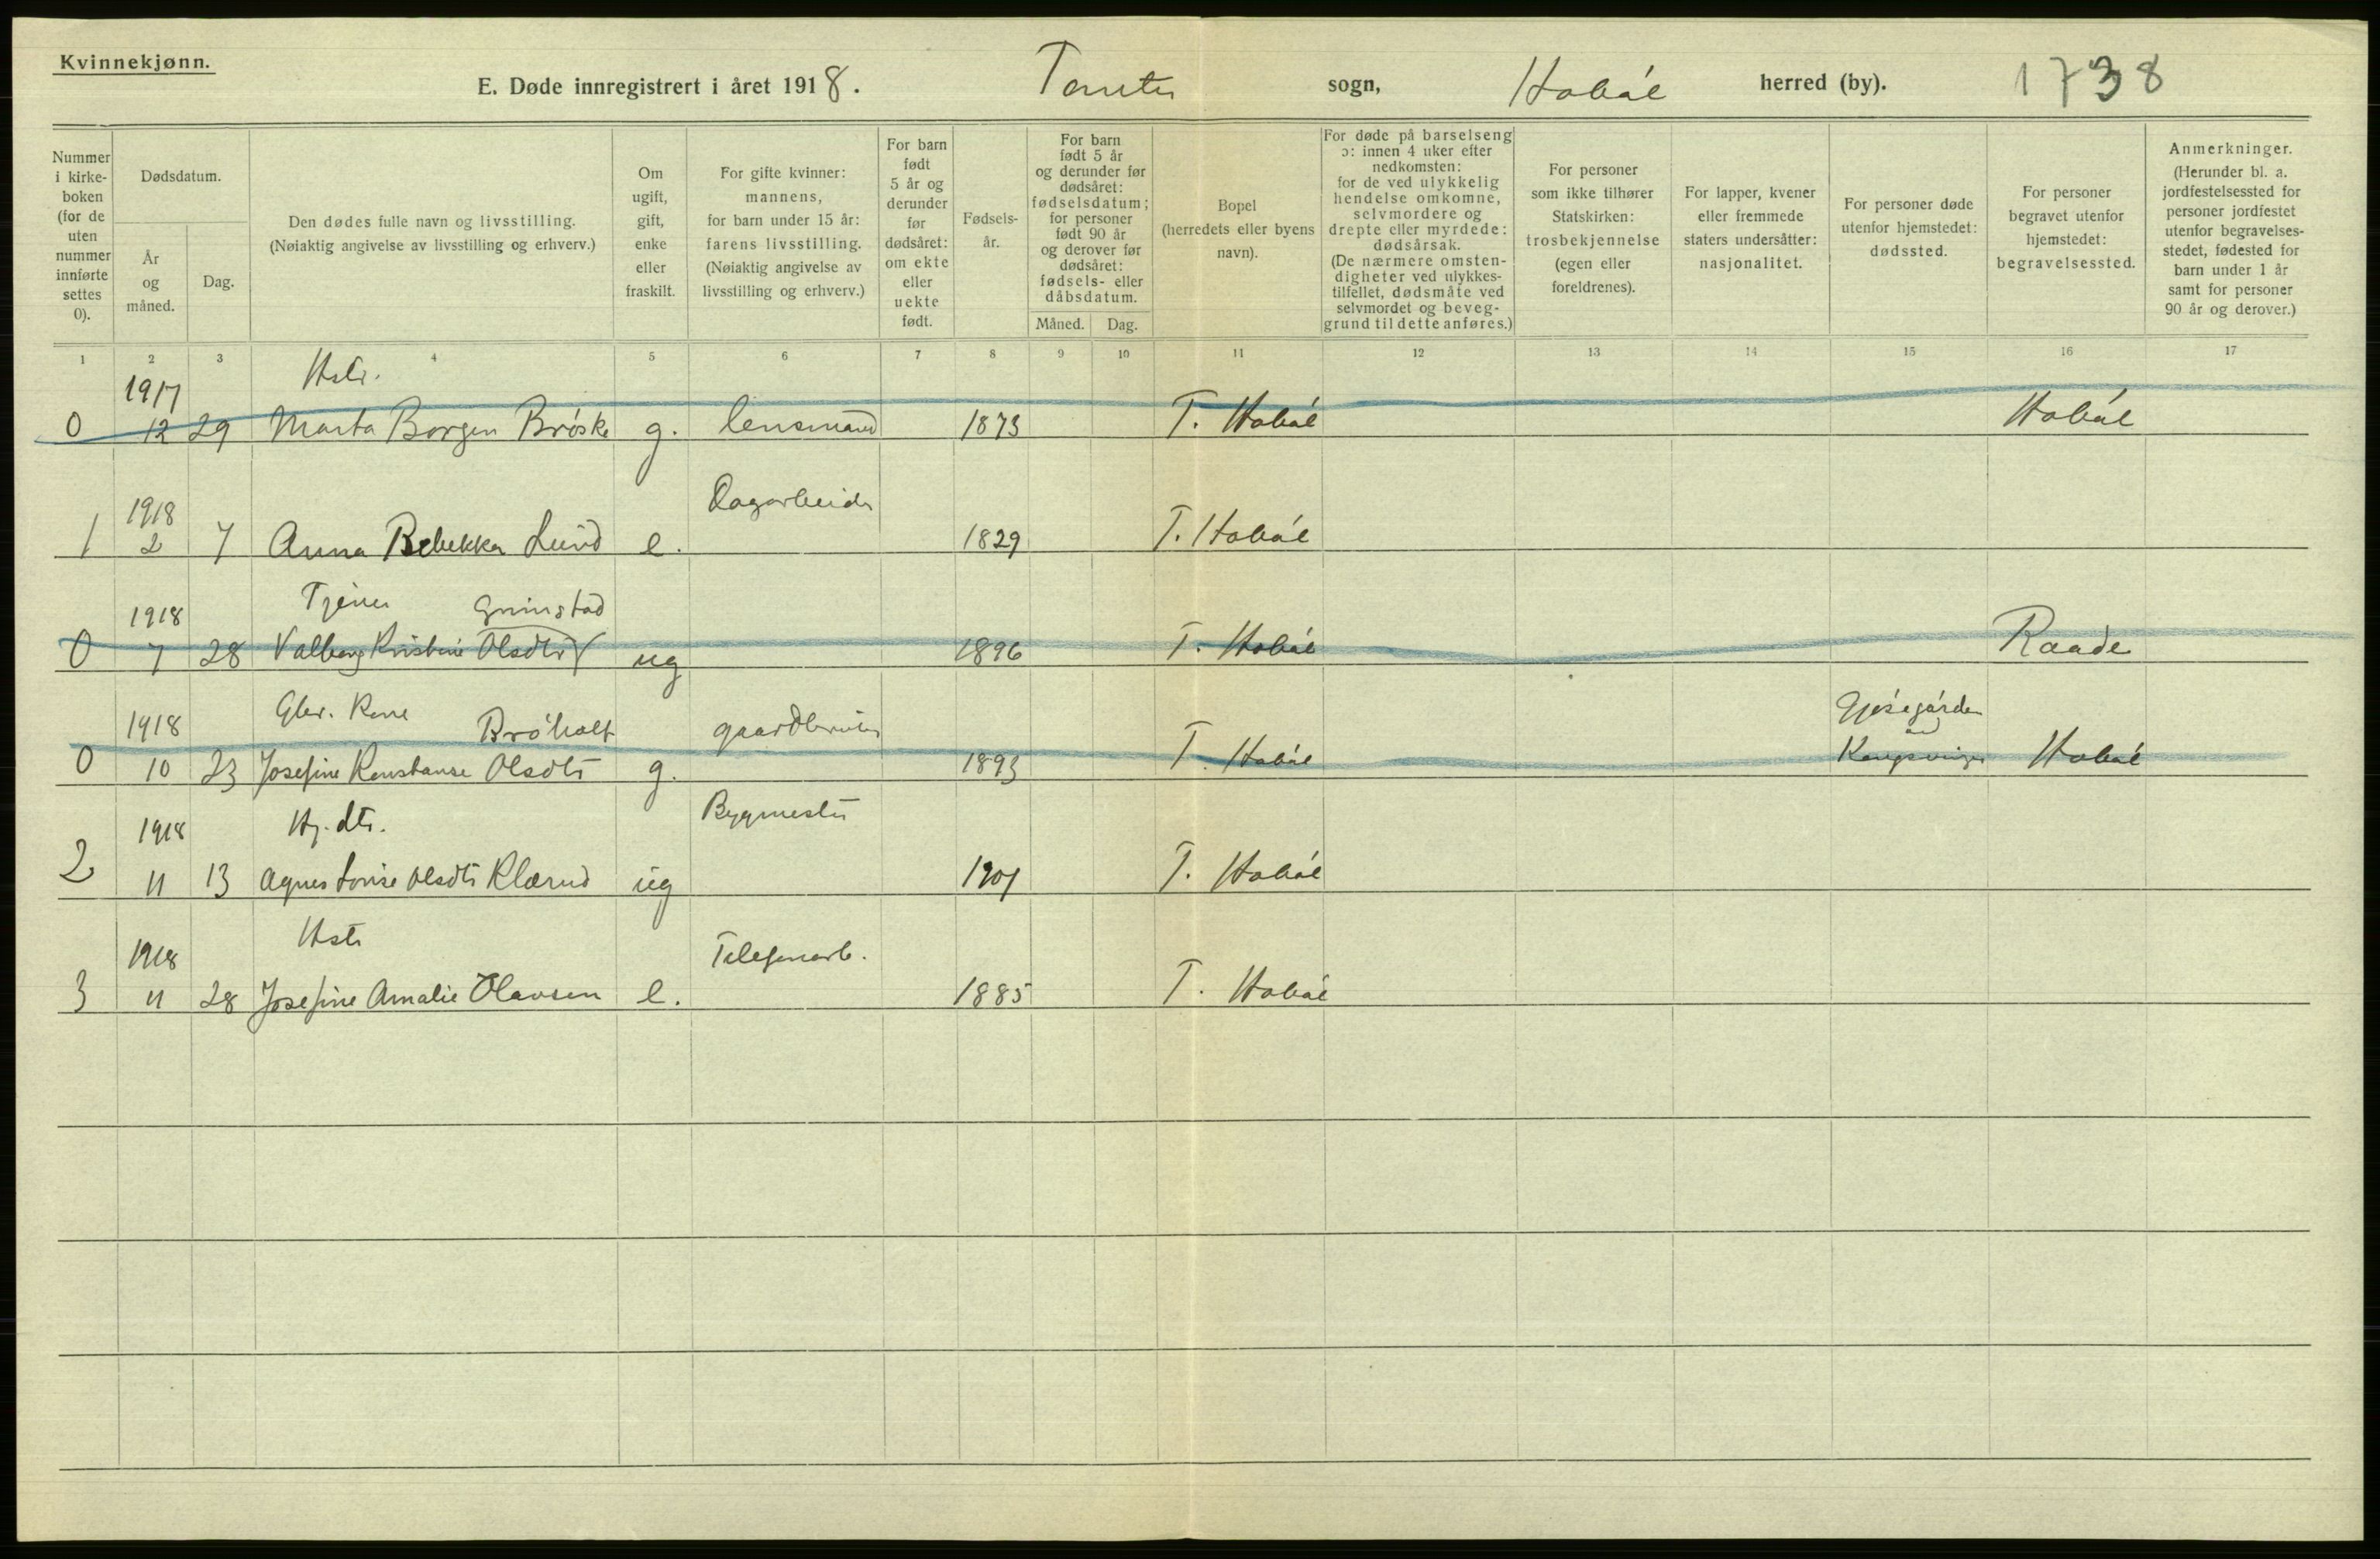 Kvinnekjønn.
E. Døde innregistrert i året 1918. Tomter sogn, Hobøl herred (by). 1738
Nummer i kirke-boken (for de uten nummer innførte settes 0).
Dødsdatum.
År og måned.
Dag.
Den dødes fulle navn og livsstilling.
(Nøiaktig angivelse av livsstilling og erhverv.)
Om ugift, gift, enke eller fraskilt.
For gifte kvinner: mannens, for barn under 15 år: farens livsstilling. (Nøiaktig angivelse av livsstilling og erhverv.)
For barn født 5 år og derunder før dødsåret: om ekte eller uekte født.
Fødsels-år.
For barn født 5 år og derunder før dødsåret: fødselsdatum; for personer født 90 år og derover før dødsåret: fødsels- eller dåbsdatum.
Måned. Dag.
Bopel (herredets eller byens navn).
For døde på barselseng ɔ: innen 4 uker efter nedkomsten: for de ved ulykkelig hendelse omkomne, selvmordere og drepte eller myrdede: dødsårsak. (De nærmere omsten-digheter ved ulykkes-tilfellet, dødsmåte ved selvmordet og beveg-grund til dette anføres.)
For personer som ikke tilhører Statskirken: trosbekjennelse (egen eller foreldrenes).
For lapper, kvener eller fremmede staters undersåtter: nasjonalitet.
For personer døde utenfor hjemstedet: dødssted.
For personer begravet utenfor hjemstedet: begravelsessted.
Anmerkninger. (Herunder bl. a. jordfestelsessted for personer jordfestet utenfor begravelses-stedet, fødested for barn under 1 år samt for personer 90 år og derover.)
1 2 3 4 5 6 7 8 9 10 11 12 13 14 15 16 17
1917
0 12 29 Marta Borgen Brøske g. lensmand 1873 T. Hobøl Hobøl
1918 Dagarbeider
1 2 7 Anna Rebekka Lund e. 1829 T. Hobøl
1918 Tjener Grimstad
0 7 28 Valborg Kristine Olsdtr ug 1896 T. Hobøl Raade
1918 Gbr. Kone Brøholt gaardbruker
0 10 23 Josefine Konstanse Olsdtr g. 1893 T. Hobøl Kongsvinger Hobøl
1918 Hj. dtr. Bygmester
2 11 13 Agnes Lovise Olsdtr Klærud ug 1901 T. Hobøl
1918 Hstr Telefonarb.
3 11 28 Josefine Amalie Olavsen e. 1885 T. Hobøl